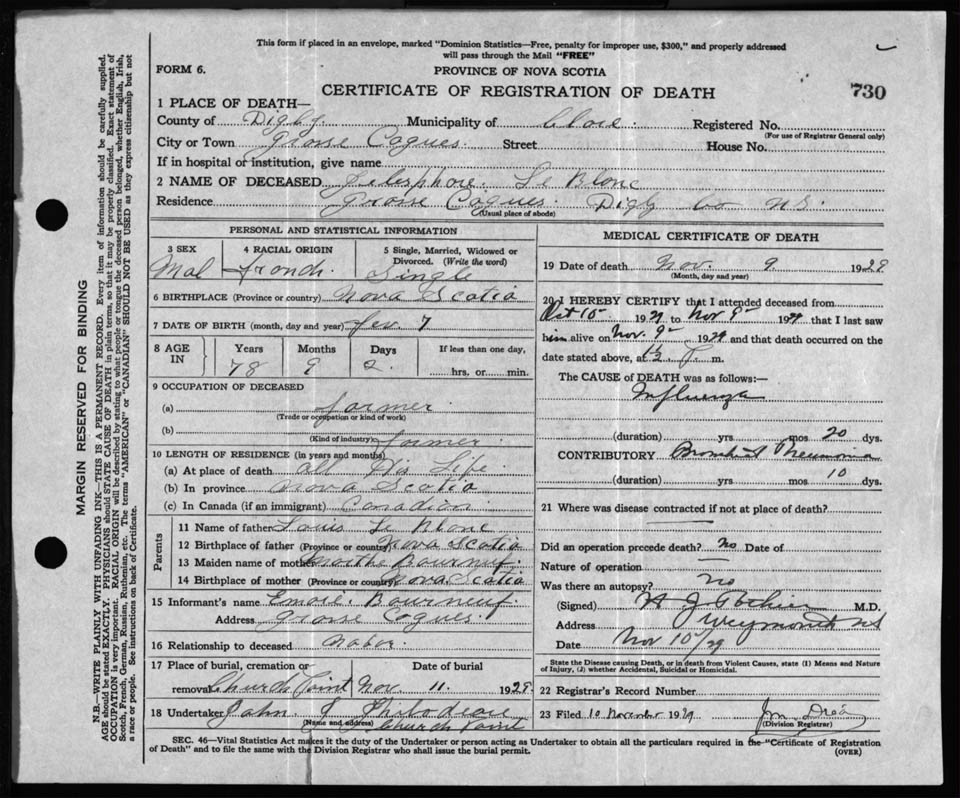 This form if placed in an envelope, marked "Dominion Statistics—Free, penalty for improper use, $300," and properly addressed
will pass through the Mail "FREE"
FORM 6.
PROVINCE OF NOVA SCOTIA
CERTIFICATE OF REGISTRATION OF DEATH
730
1 PLACE OF DEATH—
County of Digby. Municipality of Clare. Registered No.
(For use of Registrar General only)
City or Town Grosse Coques. Street House No.
If in hospital or institution, give name
2 NAME OF DECEASED Telesphore. Le Blanc
Residence Grosse Coques. Digby Co NS.
(Usual place of abode)
PERSONAL AND STATISTICAL INFORMATION
3 SEX Mal
4 RACIAL ORIGIN french.
5 Single, Married, Widowed or Divorced. (Write the word) Single
6 BIRTHPLACE (Province or country) Nova Scotia
7 DATE OF BIRTH (month, day and year) fev. 7
8 AGE IN Years Months Days If less than one day,
78 9 2. hrs. or min.
9 OCCUPATION OF DECEASED
(a) farmer
(Trade or occupation or kind of work)
(b)
(Kind of industry) farmer.
10 LENGTH OF RESIDENCE (in years and months)
(a) At place of death all His Life
(b) In province Nova Scotia
(c) In Canada (if an immigrant) Canadian
Parents
11 Name of father Louis Le Blanc
12 Birthplace of father (Province or country) Nova Scotia
13 Maiden name of mother Bourneuf.
14 Birthplace of mother (Province or country) Nova Scotia
15 Informant's name Bourneuf.
Address Grosse Coques.
16 Relationship to deceased Nabor.
17 Place of burial, cremation or removal Church Point
Date of burial Nov 11. 1929
18 Undertaker John. J Thibodeau
(Name and address) Church Point
MEDICAL CERTIFICATE OF DEATH
19 Date of death Nov. 9. 1929
(Month, day and year)
20 I HEREBY CERTIFY that I attended deceased from
Oct 10 1929 to Nov 9 1929 that I last saw
him alive on Nov. 9 1929 and that death occurred on the
date stated above, at P. m.
The CAUSE of DEATH was as follows:—
Influenza
(duration) yrs mos 20 dys.
CONTRIBUTORY Bronchial Pneumonia
(duration) yrs mos 10 dys.
21 Where was disease contracted if not at place of death?
Did an operation precede death? No Date of
Nature of operation
Was there an autopsy? No
(Signed) M.D.
Address Weymouth NS
Date Nov 10/29
State the Disease causing Death, or in death from Violent Causes, state (1) Means and Nature
of Injury, (2) whether Accidental, Suicidal or Homicidal.
22 Registrar's Record Number
23 Filed 10 November 1929
(Division Registrar)
SEC. 46—Vital Statistics Act makes it the duty of the Undertaker or person acting as Undertaker to obtain all the particulars required in the "Certificate of Registration
of Death" and to file the same with the Division Registrar who shall issue the burial permit.
(OVER)
MARGIN RESERVED FOR BINDING
N.B.—WRITE PLAINLY WITH UNFADING INK—THIS IS A PERMANENT RECORD. Every item of information should be carefully supplied.
AGE should be stated EXACTLY. PHYSICIANS should STATE CAUSE OF DEATH in plain terms, so that it may be properly classified. Exact statement of
OCCUPATION is very important. RACIAL ORIGIN will be described by stating to what people or tongue the deceased person belonged, whether English, Irish,
Scotch, French, German, Russian, Ruthenian, etc. The terms "AMERICAN" or "CANADIAN" SHOULD NOT BE USED as they express citizenship but not
a race or people. See instructions on back of Certificate.